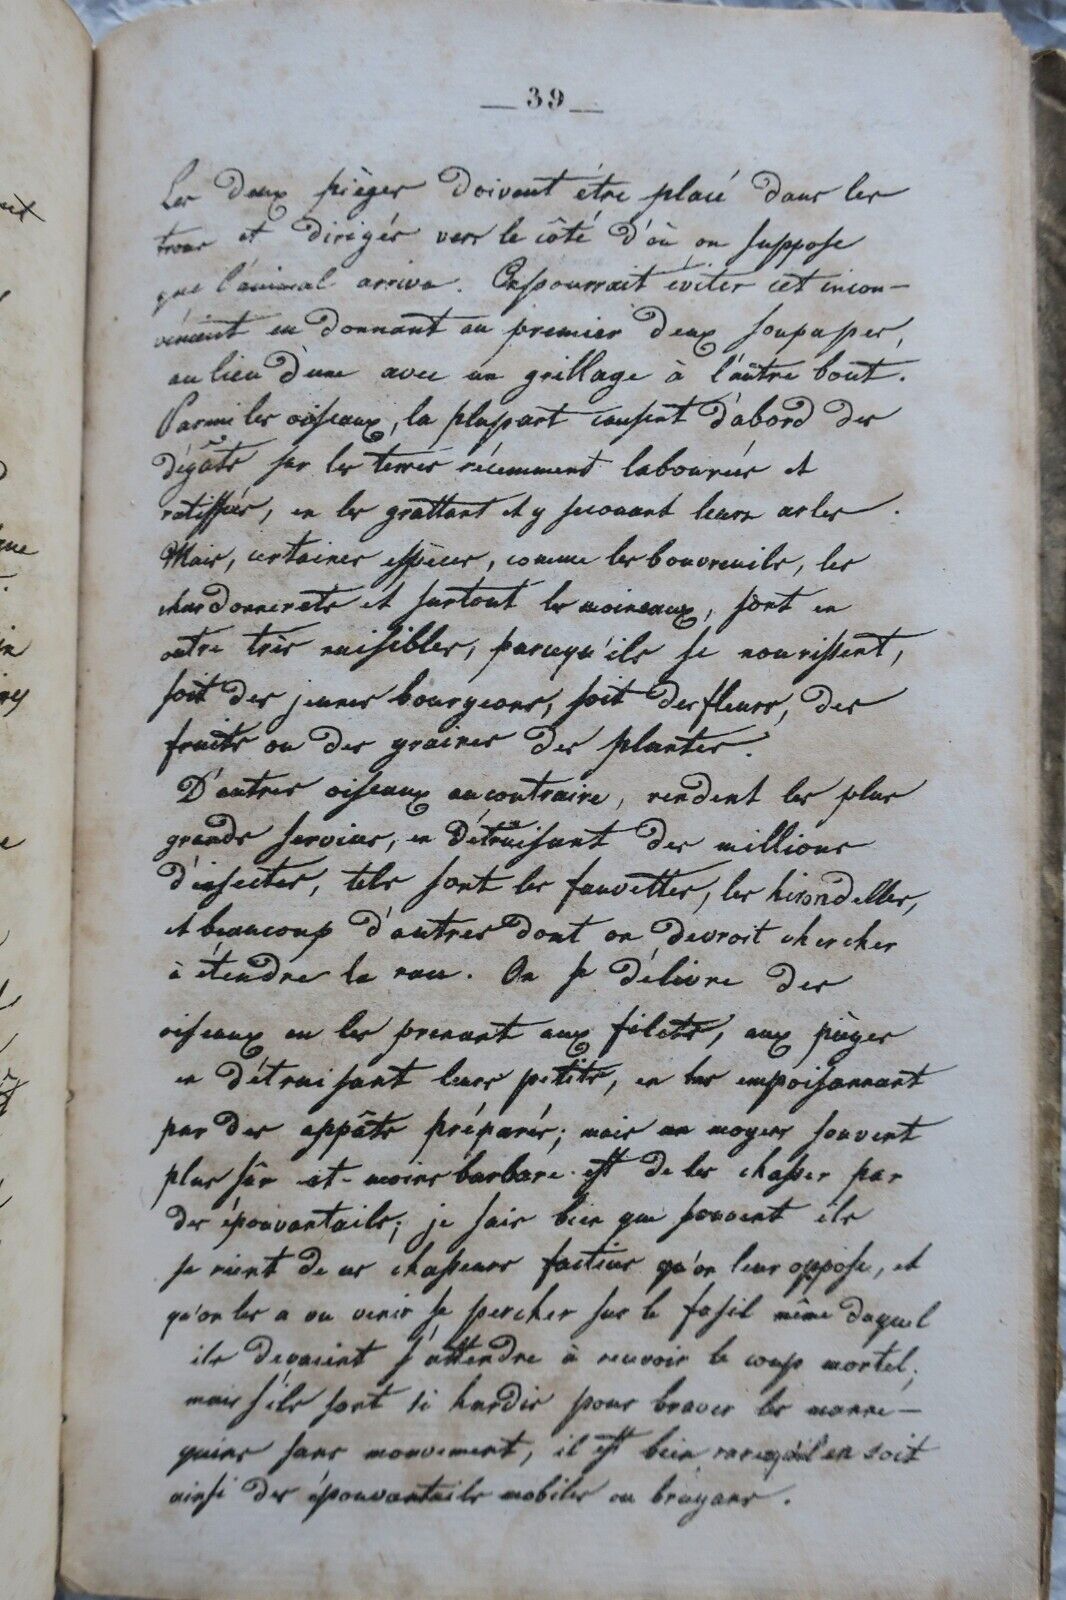 — 39 —
Les deux pièges doivent être placé dans les
trous et dirigés vers le côté d'où on suppose
que l'animal arriva. On pourrait éviter cet incon-
vénient en donnant au premier deux soupapes,
au lieu d'une avec un grillage à l'autre bout.
Parmi les oiseaux, la plupart causent d'abord des
dégâts sur les terres récemment labourées et
ratissées, en les grattant et y secouant leurs ailes.
Mais, certaines espèces, comme les bouvreuils, les
chardonnerets et surtout les moineaux, sont en
outre très nuisibles, parcequ'ils se nourissent,
soit des jeunes bourgeons, soit des fleurs, des
fruits ou des graines des plantes.
D'autres oiseaux au contraire, rendent les plus
grands services, en détruisant des millions
d'insectes, tels sont les fauvettes, les hirondelles,
et beaucoup d'autres dont on devroit chercher
à étendre la race. On se délivre des
oiseaux en les prenant aux filets, aux pièges
en détruisant leurs petits, en les empoisonnant
par des appâts préparés; mais un moyen souvent
plus sûr et moins barbare est de les chasser par
des épouvantails; je sais bien que souvent ils
se rient de ces chasseurs factices qu'on leur oppose, et
qu'on les a vu venir se percher sur le fusil même duquel
ils devaient s'attendre à recevoir le coup mortel;
mais s'ils sont si hardis pour braver les manne-
quins sans mouvement, il est bien rare qu'il en soit
ainsi des épouvantails mobiles ou bruyans.